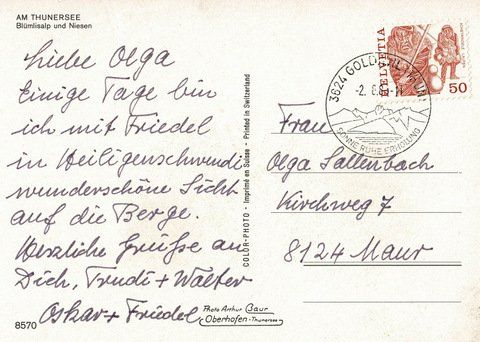 AM THUNERSEE
Blümlisalp und Niesen
Liebe Olga
Einige Tage bin
ich mit Friedel
in Heiligenschwendi
wunderschöne Sicht
auf die Berge.
Herzliche Grüsse an
Dich, Trudi + Walter
Oskar + Friedel
8570
Photo Arthur Baur
Oberhofen-Thunersee
COLOR-PHOTO - Imprimé en Suisse - Printed in Switzerland
HELVETIA
50
3624 GOLDIWIL (THUN)
SONNE RUHE ERHOLUNG
Frau
Olga Sallenbach
Kirchweg 7
8124 Maur